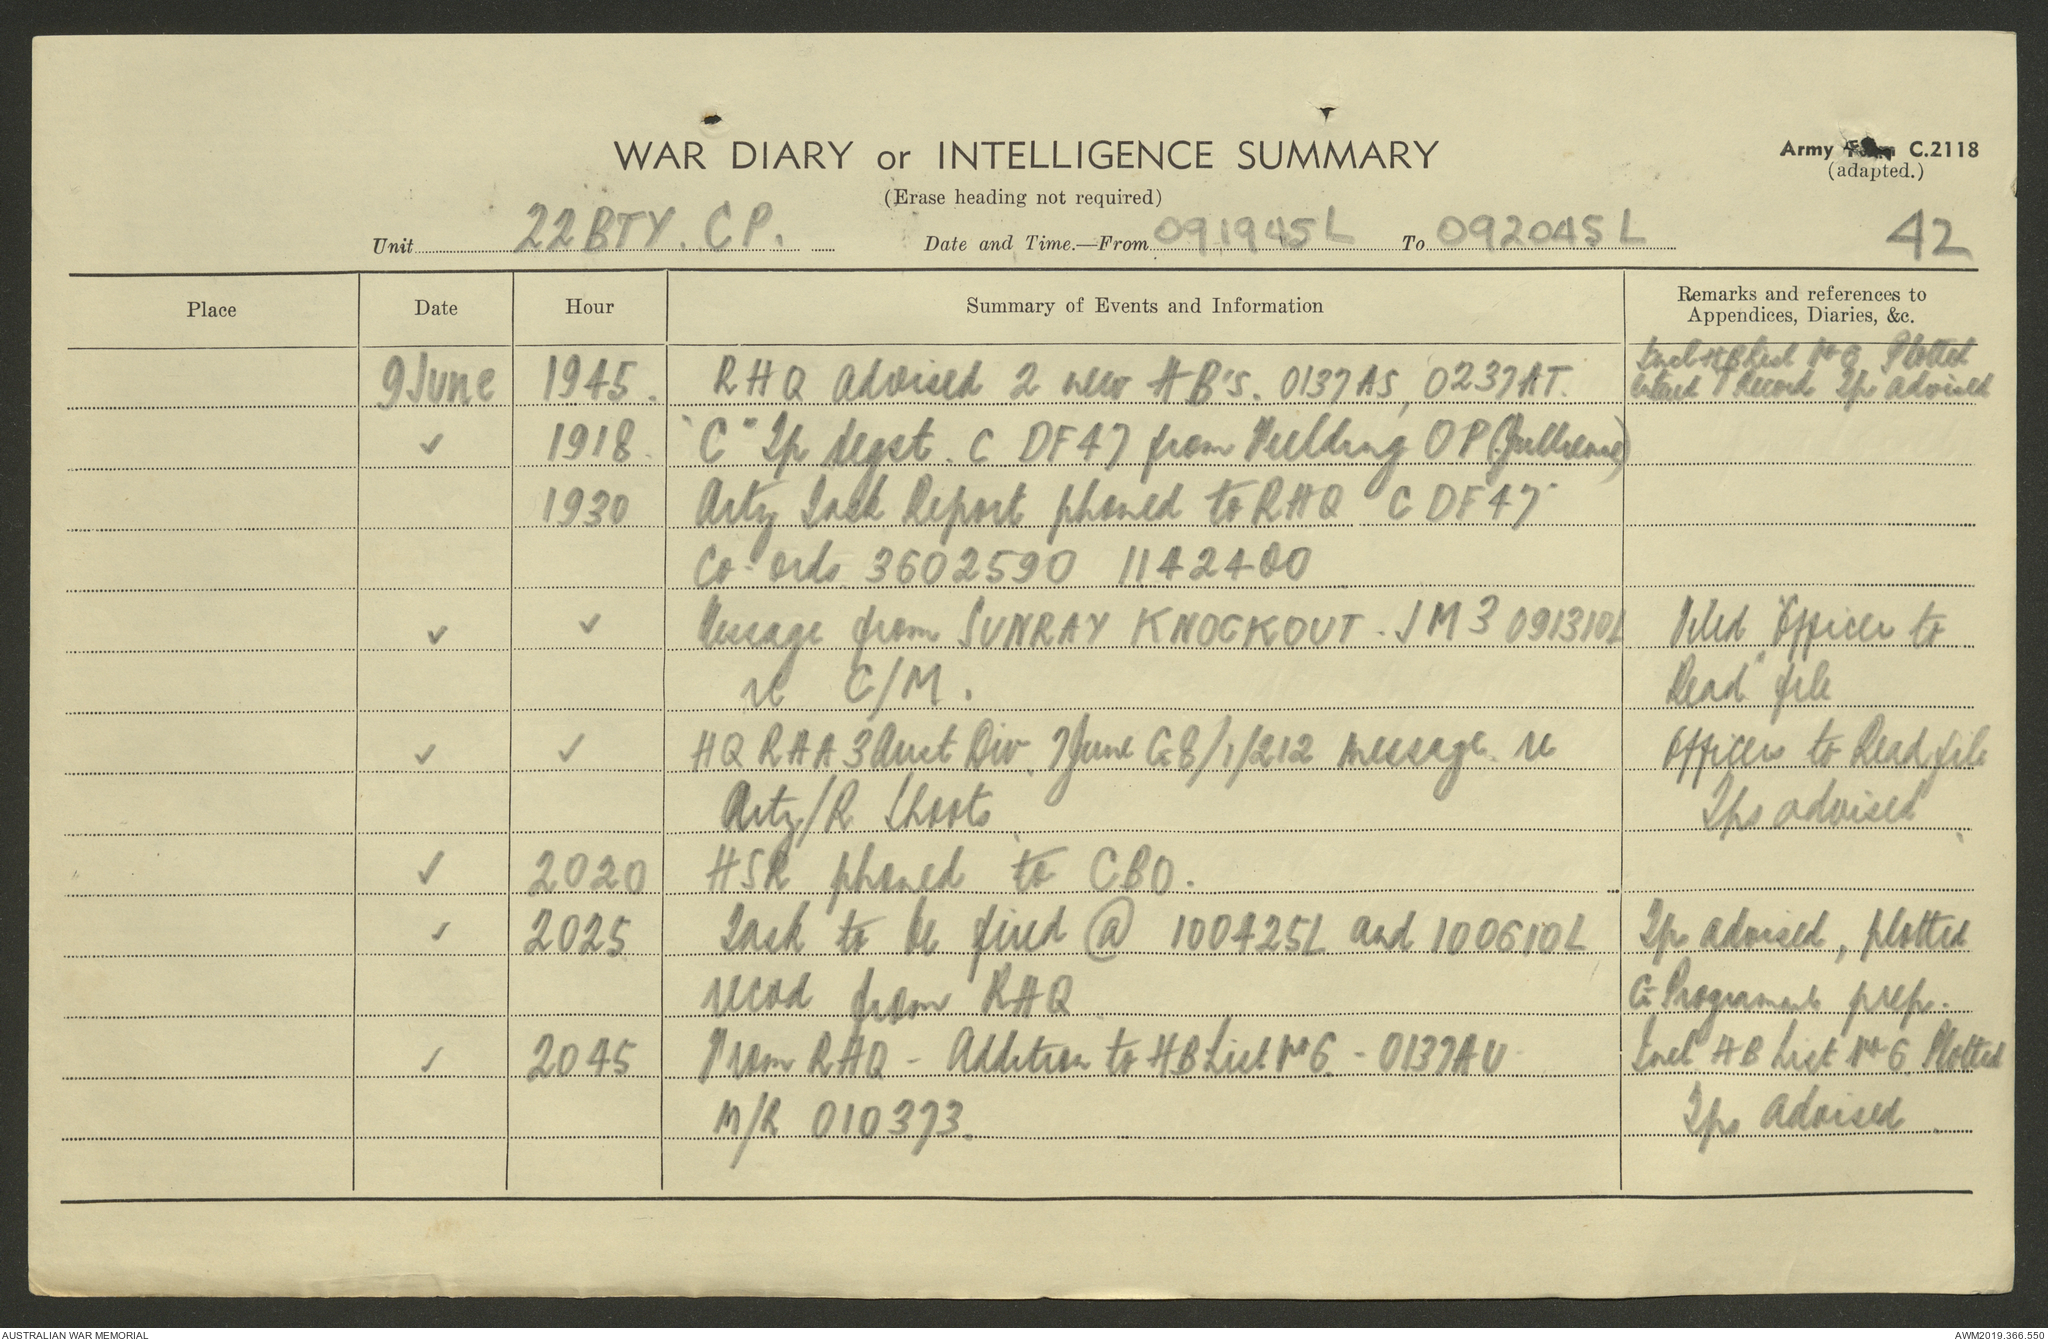 WAR DIARY or INTELLIGENCE SUMMARY
Army Form C.2118
(adapted.)
(Erase heading not required)
Unit 22 BTY. CP. Date and Time.—From 091945L To 092045L 42
Place Date Hour Summary of Events and Information Remarks and references to
Appendices, Diaries, &c.
9 June 1945. RHQ advised 2 new HB's. 0137AS, 0237AT. Incl HB List No 6 Plotted
Record Tp advised
✓ 1918. "C" Tp regst. C DF47 from Fielding OP
1930 Arty Task Report phoned to RHQ C DF47
Co-ords 3602590 1142400
✓ ✓ Message from SUNRAY KNOCKOUT - JM3 091310L Filed "Officer to
re C/M. Read" file
✓ ✓ HQ RAA 3 Aust Div. 7 June G8/1/212 message re Officers to Read file
Arty/R Shoots Tps advised
✓ 2020 HSR phoned to CBO.
✓ 2025 Task to be fired @ 100425L and 100610L Tp advised, plotted
recvd from RHQ G Programme prep.
✓ 2045 From RHQ - Addition to HB List No 6 - 0137AU Incl HB List No 6 Plotted
M/R 010373. Tps advised
AUSTRALIAN WAR MEMORIAL
AWM2019.366.550